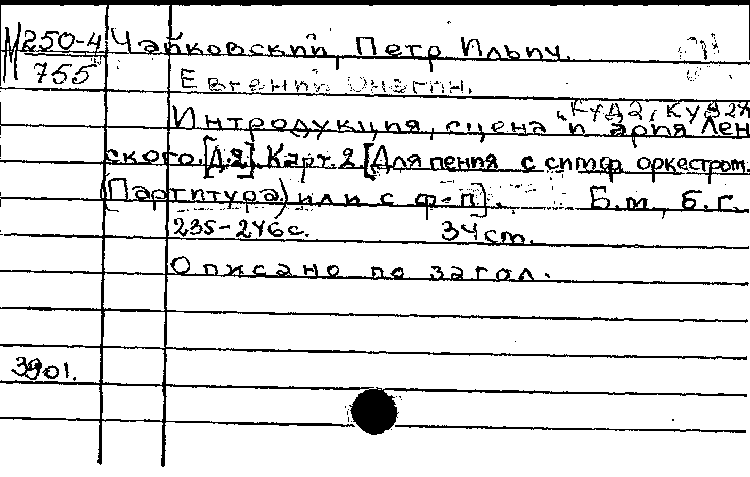 М 250-4 Чайковский, Петр Ильич.
755 Евгений Онегин.
"Куда, куда
Интродукция, сцена и ария Лен
ского. [Д.2]. Карт. 2 [Для пения с симф оркестром.
(Партитура) или с ф-п]. Б.м., б.г.
235-246 с. 34 ст.
Описано по загол.
3901.